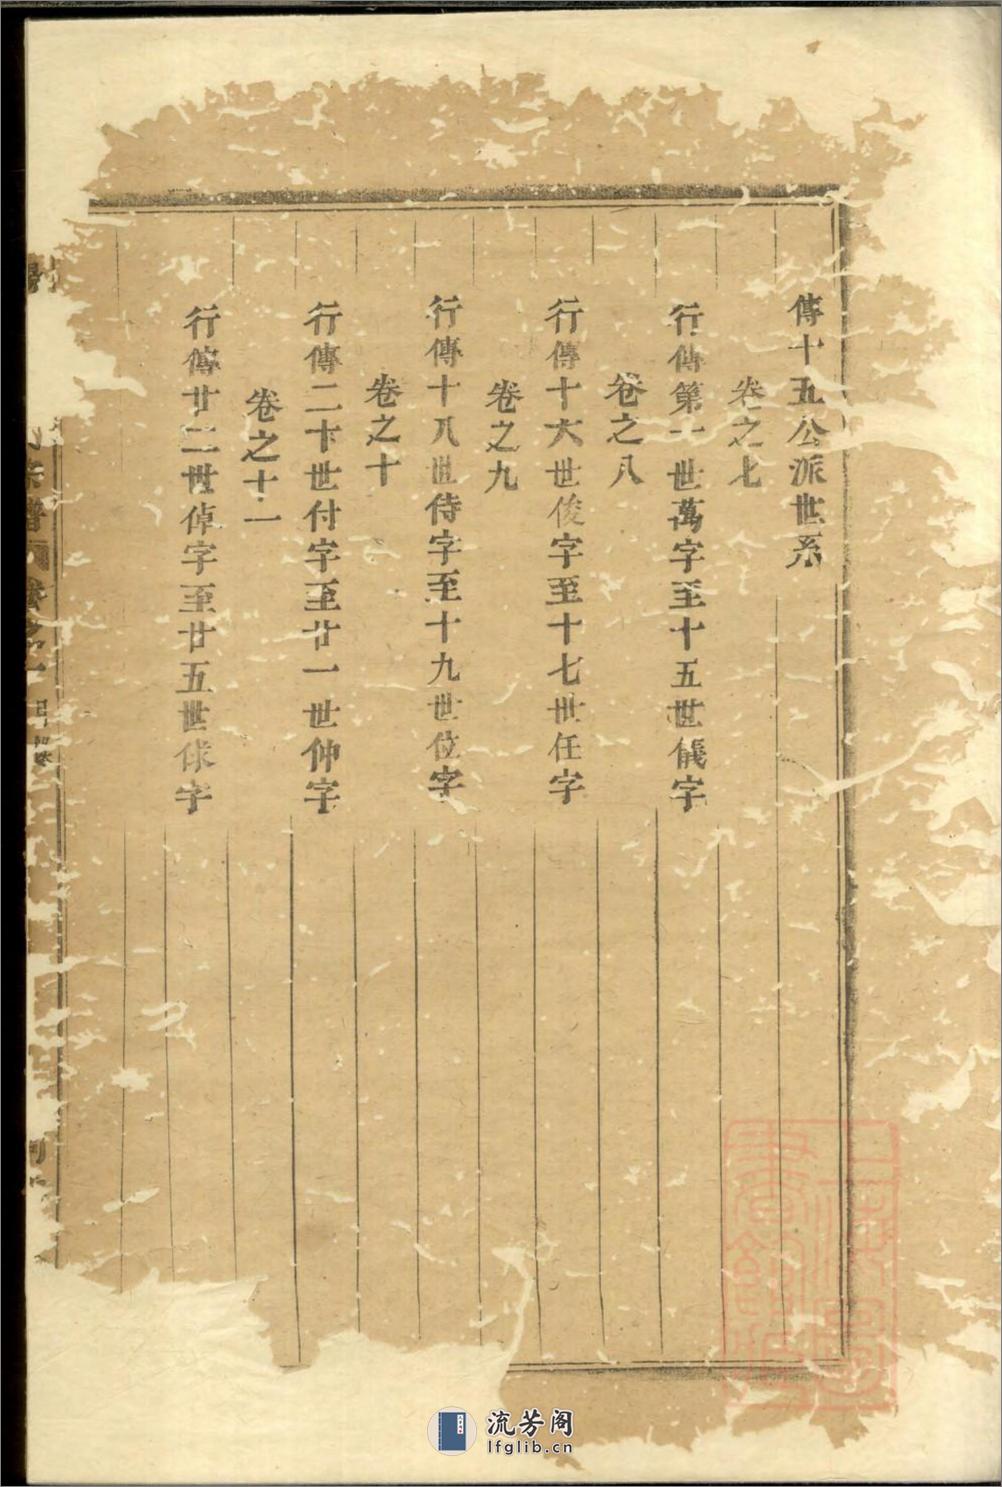 傳十五公派世系
卷之七
行傳第一世萬字至十五世儀字
卷之八
行傳十六世俊字至十七世任字
卷之九
行傳十八世侍字至十九世位字
卷之十
行傳二十世付字至廿一世仲字
卷之十一
行傳廿二世倬字至廿五世俅字
宗譜 卷之一 目錄
流芳阁
lfglib.cn